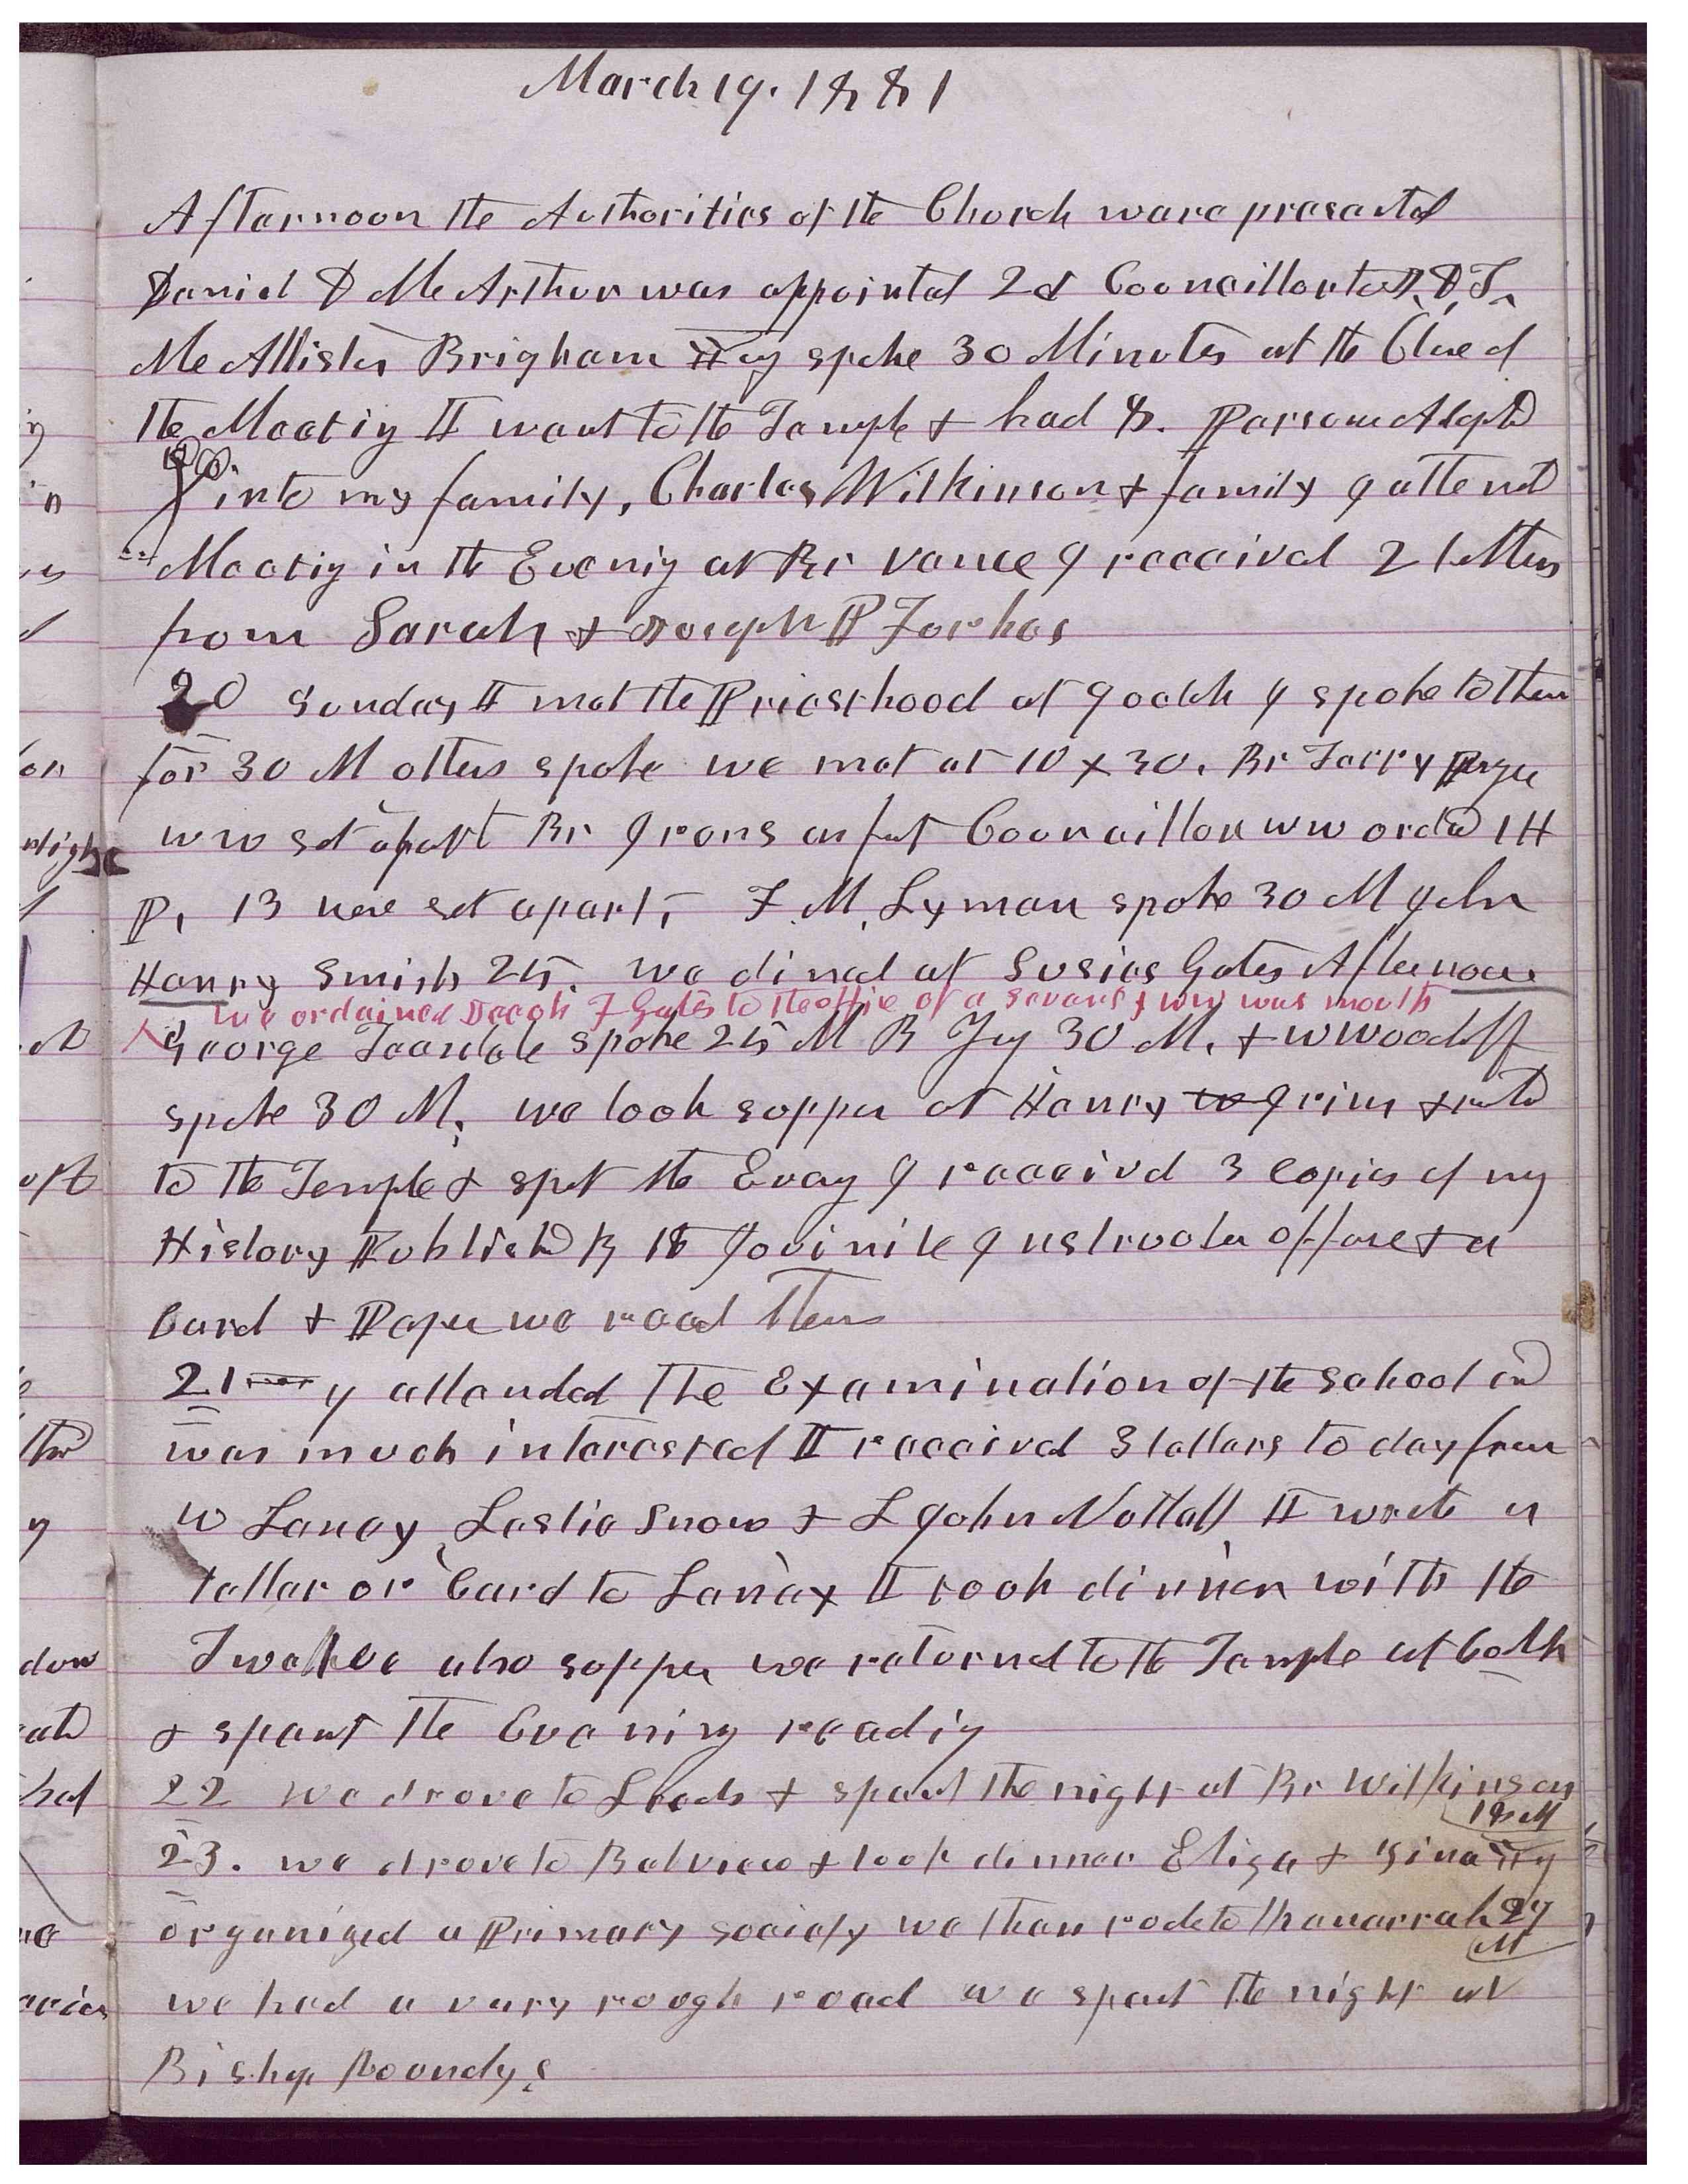 March 19. 1881
Afternoon the Authorities of the Church ware presented
Daniel D McArthur was appointed 2d Councillor to J. D. T.
McAllister Brigham Young spoke 30 Minutes at the Close of
the Meetig I went to the Temple & had 8. Persons Adopted
into my family, Charles Wilkinson & family I attend
Meetig in the Evenig at Br Vance I received 2 letters
from Sarah & Joseph P Forbes
20 Sunday I met the Priesthood at 9 oclok & spoke to them
for 30 M others spoke we met at 10 x 30. Br Terry
WW set apart Br Irons as first Councillor WW ordaid 1 H
P, 13 were set apart, F. M. Lyman spoke 30 M John
Henry Smith 25. we dined at Susies Gates Afternoon
We ordained Jacob F Gates to the office of a Seventy & WW was mouth
George Teasdale spoke 25 M B Yg 30 M. & WWoodruff
spoke 30 M, we took supper at Henry & rode
to the Temple & spet the Eveng I received 3 Copies of my
History Published By the Juvinile Instructer office & a
Card & Paper we read them
21 I attended the Examination of the School and
was much interested I received 3 letters to day from
W Lanay, Leslie Snow & L John Nuttall I wrote a
letter or Card to Lanay I took dinner with the
Twelve also supper we returned to the Temple at 6 oclk
& spent the Evening readig
22 we drove to Leeds & spent the night at Br Wilkinson
18 M
23. we drove to Belview & took dinner Eliza & Zina Yg
organized a Primary Society we then rode to Kanarrah 27
M
we had a very rough road we spent the night at
Bishop Roundys